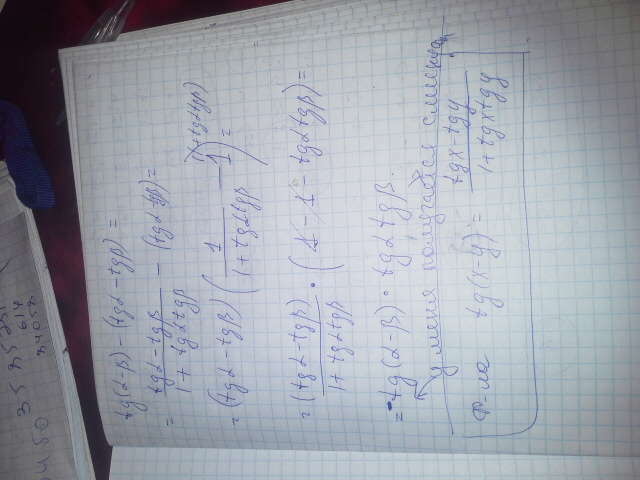 tg(α-β) - (tgα - tgβ) =
= \frac{tgα - tgβ}{1 + tgαtgβ} - (tgα-tgβ) =
= (tgα - tgβ) ( \frac{1}{1 + tgαtgβ} - 1 ) = (1+tgαtgβ)
= \frac{(tgα - tgβ)}{1 + tgαtgβ} · (1 - 1 - tgαtgβ) =
= - tg(α-β) · tgαtgβ.
у меня получается с минусом
Ф-ла tg(x-y) = \frac{tgx - tgy}{1 + tgxtgy}
353523
614
34052